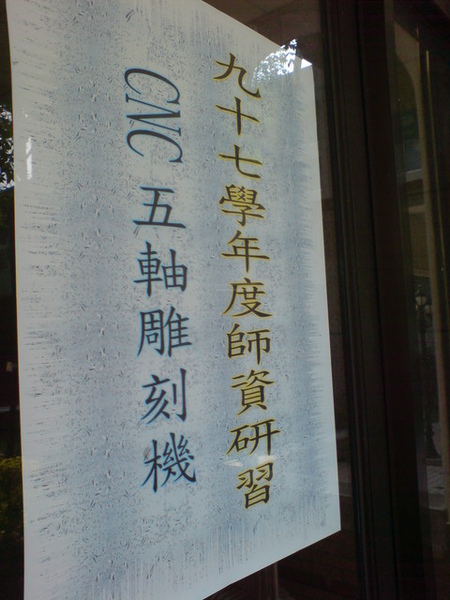 九十七學年度師資研習
CNC五軸雕刻機